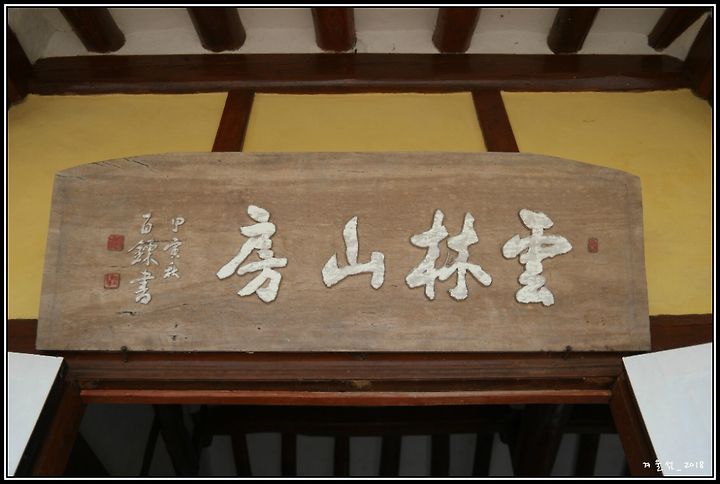 雲林山房
甲寅秋
百鍊書
겨울섬_2018